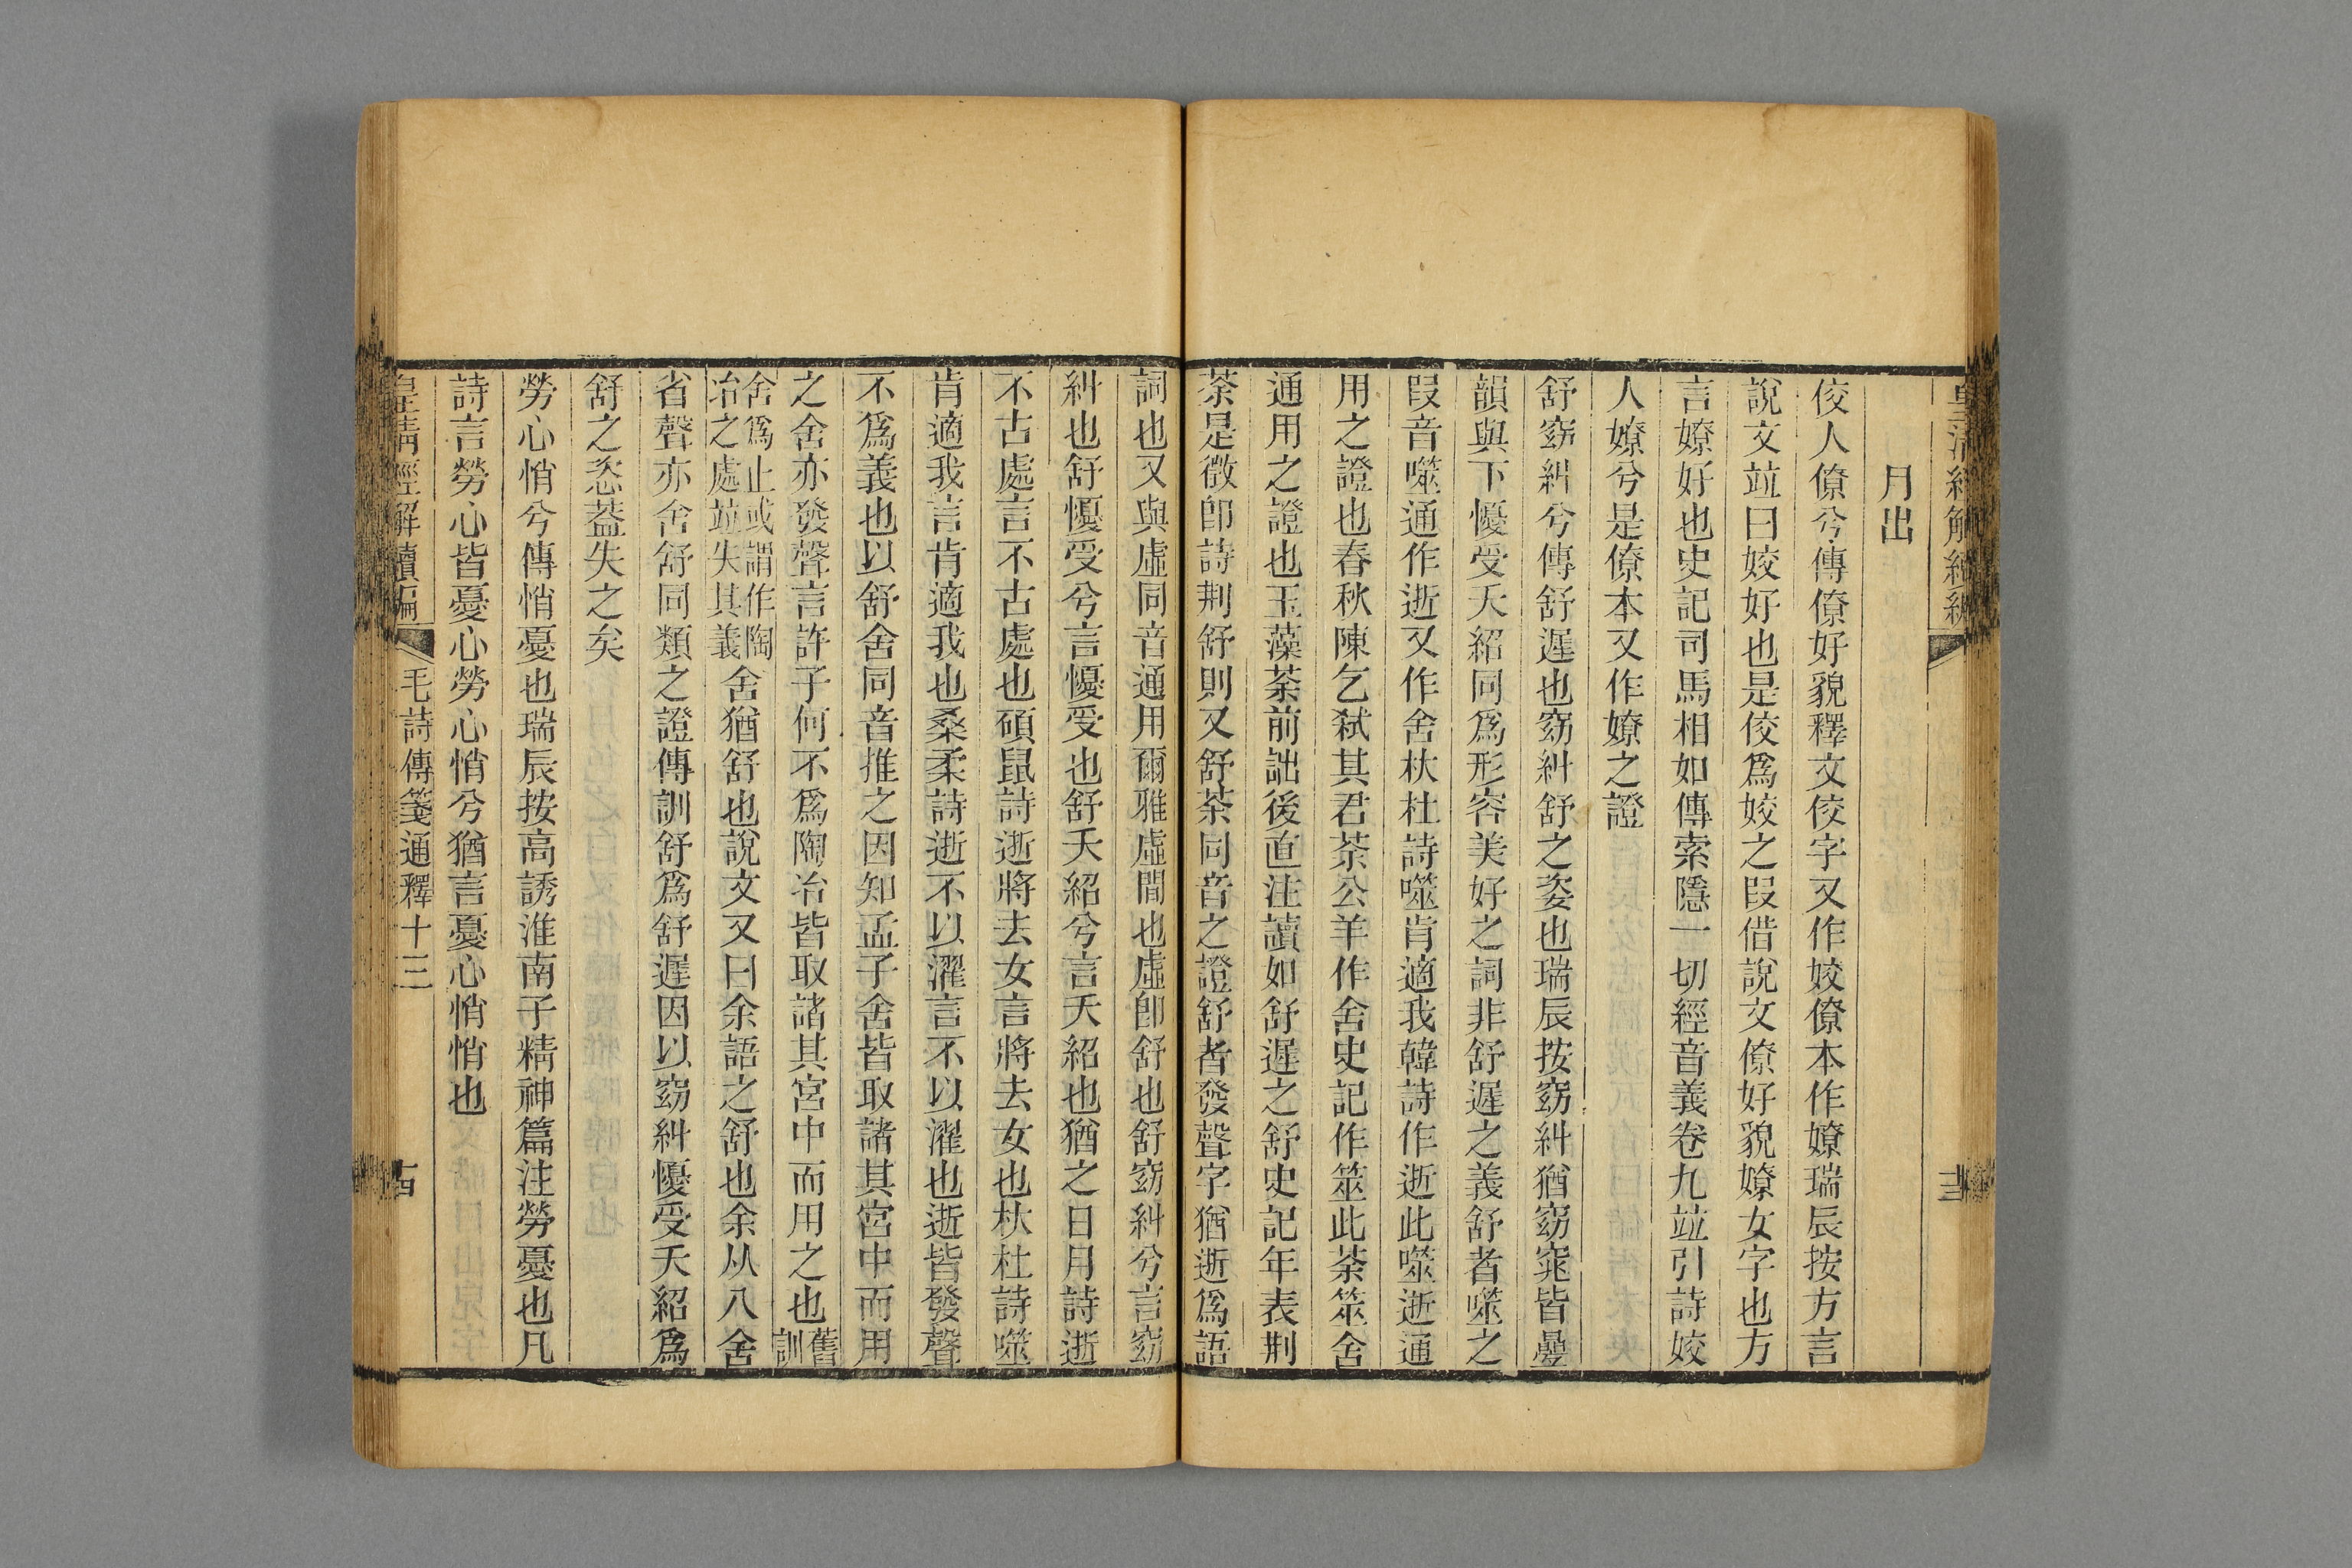 皇清經解續編
月出
佼人僚兮傳僚好貌釋文佼字又作姣僚本作嫽瑞辰按方言
說文竝曰姣好也是佼爲姣之叚借說文僚好貌嫽女字也方
言嫽好也史記司馬相如傳索隱一切經音義卷九竝引詩姣
人嫽兮是僚本又作嫽之證
舒窈糾兮傳舒遲也窈糾舒之姿也瑞辰按窈糾猶窈窕皆疊
韻與下懮受夭紹同爲形容美好之詞非舒遲之義舒者噬之
叚音噬通作逝又作舍杕杜詩噬肯適我韓詩作逝此噬逝通
用之證也春秋陳乞弑其君荼公羊作舍史記作筮此荼筮舍
通用之證也玉藻荼前詘後直注讀如舒遲之舒史記年表荆
荼是徵卽詩荆舒則又舒荼同音之證舒者發聲字猶逝爲語
詞也又與虛同音通用爾雅虛閒也虛卽舒也舒窈糾兮言窈
糾也舒懮受兮言懮受也舒夭紹兮言夭紹也猶之日月詩逝
不古處言不古處也碩鼠詩逝將去女言將去女也杕杜詩噬
肯適我言肯適我也桑柔詩逝不以濯言不以濯也逝皆發聲
不爲義也以舒舍同音推之因知孟子舍皆取諸其宮中而用
之舍亦發聲言許子何不爲陶冶皆取諸其宮中而用之也舊訓
舍爲止或謂作陶冶之處竝失其義舍猶舒也說文又曰余語之舒也余从八舍
省聲亦舍舒同類之證傳訓舒爲舒遲因以窈糾懮受夭紹爲
舒之恣葢失之矣
勞心悄兮傳悄憂也瑞辰按高誘淮南子精神篇注勞憂也凡
詩言勞心皆憂心勞心悄兮猶言憂心悄悄也
皇清經解續編 毛詩傳箋通釋十三 古